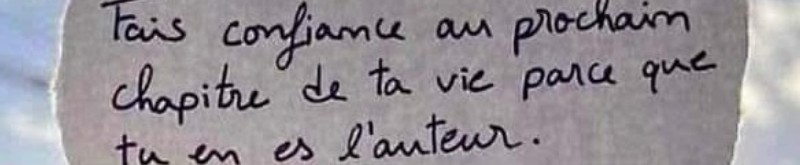 Fais confiance au prochain
chapitre de ta vie parce que
tu en es l'auteur.